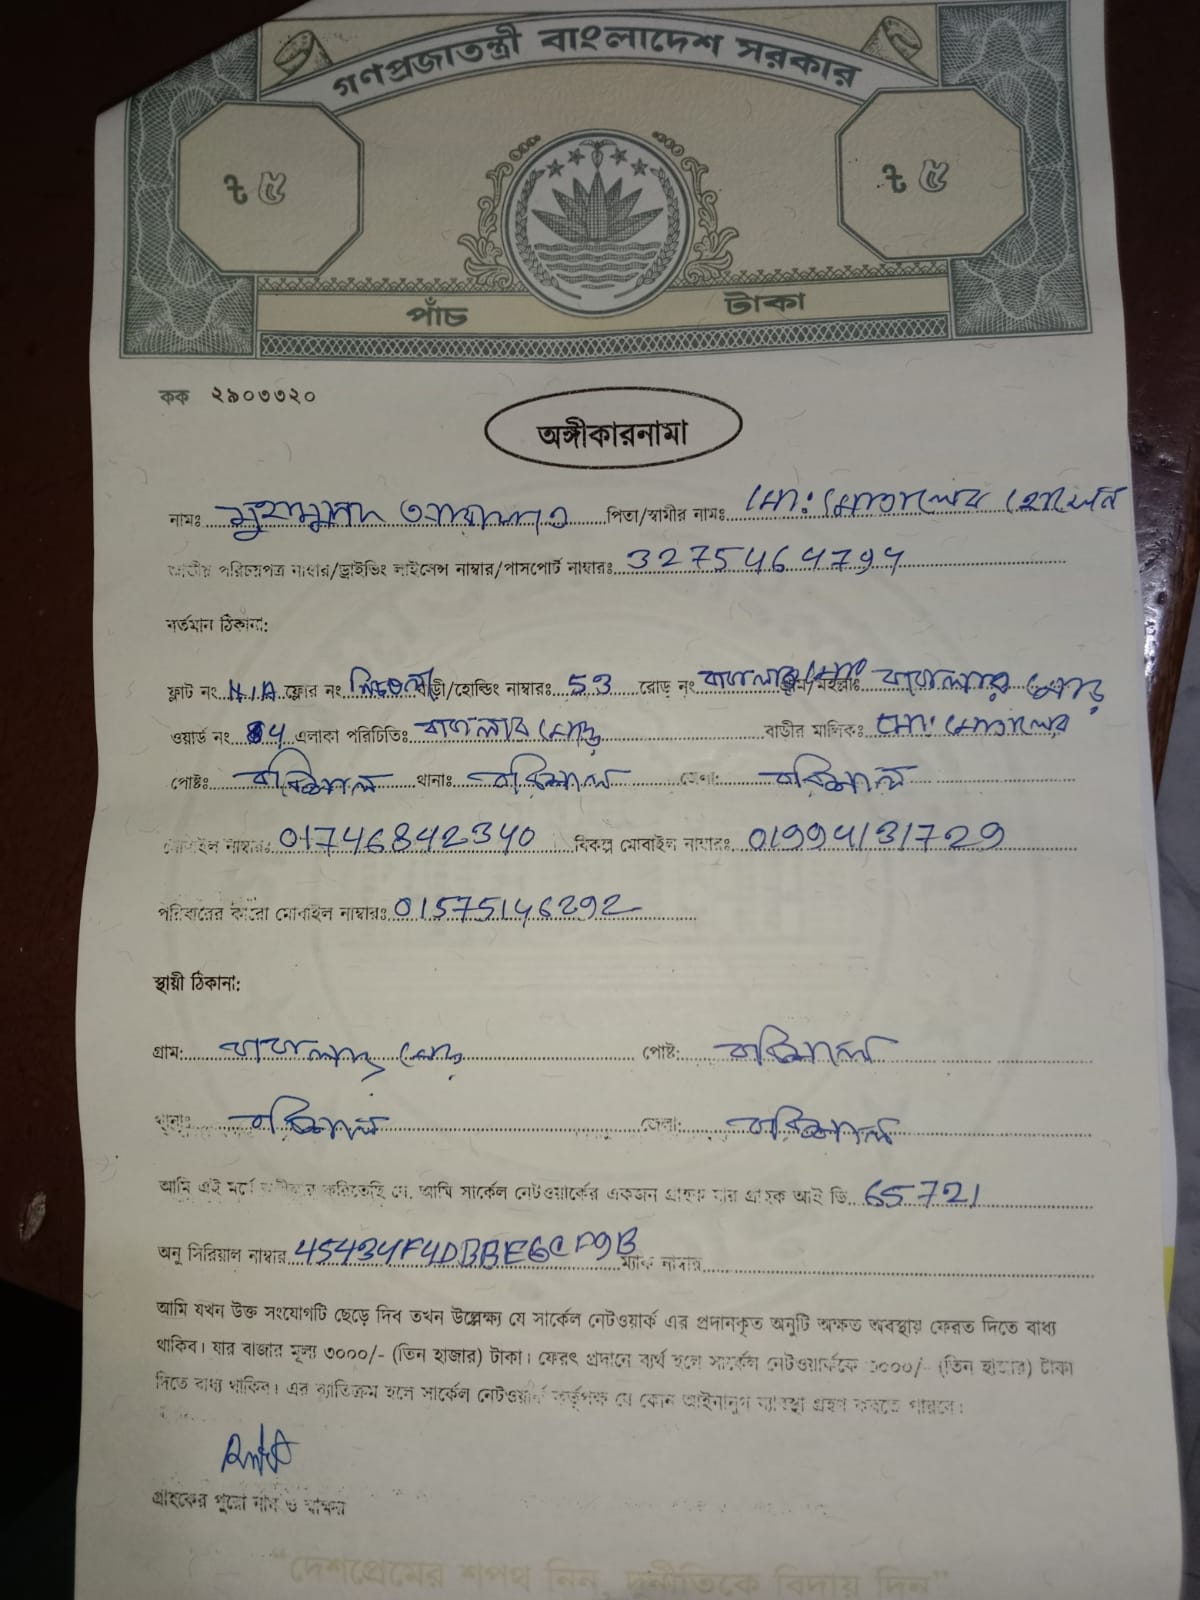 গণপ্রজাতন্ত্রী বাংলাদেশ সরকার
৳ ৫ ৳ ৫
পাঁচ টাকা
কক ২৯০৩৩২০
অঙ্গীকারনামা
নামঃ মুহাম্মাদ পিতা/স্বামীর নামঃ মো: মোতালেব হোসেন
জাতীয় পরিচয়পত্র নাম্বার/ড্রাইভিং লাইসেন্স নাম্বার/পাসপোর্ট নাম্বারঃ 3275464794
বর্তমান ঠিকানা:
ফ্লাট নং N/A ফ্লোর নং বাড়ী/হোল্ডিং নাম্বারঃ 53 রোড় নং গ্রাম/মহল্লাঃ
ওয়ার্ড নং এলাকা পরিচিতিঃ বাড়ীর মালিকঃ মো: মোতালেব
পোষ্টঃ বরিশাল থানাঃ বরিশাল জেলা: বরিশাল
মোবাইল নাম্বারঃ 01746842340 বিকল্প মোবাইল নাম্বারঃ 01994131729
পরিবারের কারো মোবাইল নাম্বারঃ 01575146292
স্থায়ী ঠিকানা:
গ্রাম: পোষ্ট: বরিশাল
থানাঃ বরিশাল জেলা: বরিশাল
আমি এই মর্মে অঙ্গীকার করিতেছি যে, আমি সার্কেল নেটওয়ার্কের একজন গ্রাহক যার গ্রাহক আই ডি 65721
অনু সিরিয়াল নাম্বার 45434F4DBBE6CF9B ম্যাক নাম্বার
আমি যখন উক্ত সংযোগটি ছেড়ে দিব তখন উল্লেক্ষ্য যে সার্কেল নেটওয়ার্ক এর প্রদানকৃত অনুটি অক্ষত অবস্থায় ফেরত দিতে বাধ্য
থাকিব। যার বাজার মূল্য ৩০০০/- (তিন হাজার) টাকা। ফেরৎ প্রদানে ব্যর্থ হলে সার্কেল নেটওয়ার্ককে ৩০০০/- (তিন হাজার) টাকা
দিতে বাধ্য থাকিব। এর ব্যতিক্রম হলে সার্কেল নেটওয়ার্ক কর্তৃপক্ষ যে কোন আইনানুগ ব্যবস্থা গ্রহণ করতে পারবে।
গ্রাহকের পুরো নাম ও স্বাক্ষর
“দেশপ্রেমের শপথ নিন, দুর্নীতিকে বিদায় দিন”